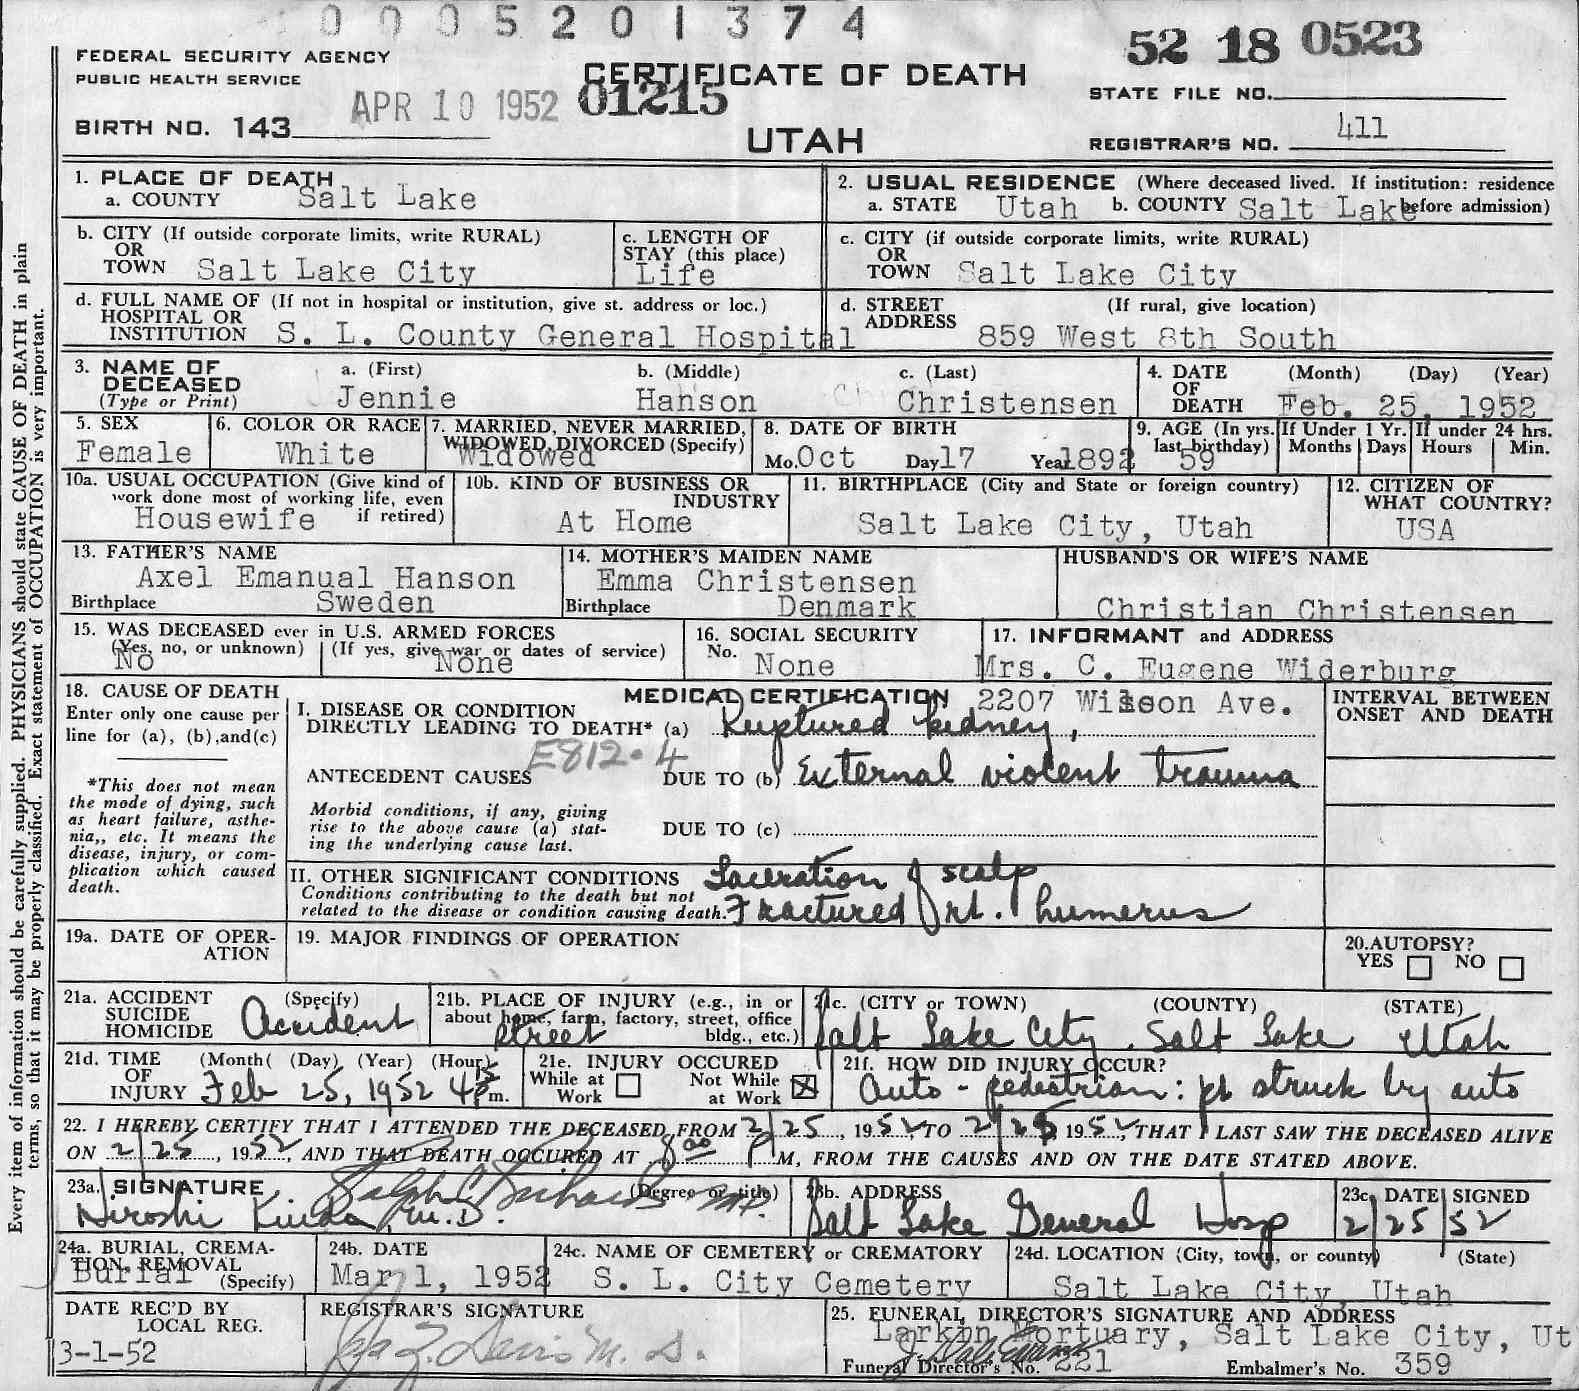 0005201374
52 18 0523
FEDERAL SECURITY AGENCY
PUBLIC HEALTH SERVICE
CERTIFICATE OF DEATH
STATE FILE NO.
APR 10 1952
01215
BIRTH NO. 143
UTAH
REGISTRAR'S NO. 411
1. PLACE OF DEATH
a. COUNTY Salt Lake
2. USUAL RESIDENCE (Where deceased lived. If institution: residence before admission)
a. STATE Utah b. COUNTY Salt Lake
b. CITY (If outside corporate limits, write RURAL)
OR
TOWN Salt Lake City
c. LENGTH OF
STAY (this place)
Life
c. CITY (if outside corporate limits, write RURAL)
OR
TOWN Salt Lake City
d. FULL NAME OF (If not in hospital or institution, give st. address or loc.)
HOSPITAL OR
INSTITUTION S. L. County General Hospital
d. STREET (If rural, give location)
ADDRESS 859 West 8th South
3. NAME OF
DECEASED
(Type or Print)
a. (First) b. (Middle) c. (Last)
Jennie Hanson Christensen
4. DATE (Month) (Day) (Year)
OF
DEATH Feb. 25, 1952
5. SEX
Female
6. COLOR OR RACE
White
7. MARRIED, NEVER MARRIED,
WIDOWED, DIVORCED (Specify)
Widowed
8. DATE OF BIRTH
Mo. Oct Day 17 Year 1892
9. AGE (In yrs. last birthday)
59
If Under 1 Yr.
Months Days
If under 24 hrs.
Hours Min.
10a. USUAL OCCUPATION (Give kind of
work done most of working life, even
if retired)
Housewife
10b. KIND OF BUSINESS OR
INDUSTRY
At Home
11. BIRTHPLACE (City and State or foreign country)
Salt Lake City, Utah
12. CITIZEN OF
WHAT COUNTRY?
USA
13. FATHER'S NAME
Axel Emanual Hanson
Birthplace Sweden
14. MOTHER'S MAIDEN NAME
Emma Christensen
Birthplace Denmark
HUSBAND'S OR WIFE'S NAME
Christian Christensen
15. WAS DECEASED ever in U.S. ARMED FORCES
(Yes, no, or unknown) (If yes, give war or dates of service)
No None
16. SOCIAL SECURITY
No. None
17. INFORMANT and ADDRESS
Mrs. C. Eugene Widerburg
2207 Wilson Ave.
18. CAUSE OF DEATH
Enter only one cause per
line for (a), (b), and (c)
*This does not mean
the mode of dying, such
as heart failure, asthe-
nia,, etc. It means the
disease, injury, or com-
plication which caused
death.
MEDICAL CERTIFICATION
I. DISEASE OR CONDITION
DIRECTLY LEADING TO DEATH* (a) Ruptured kidney,
E812.4
ANTECEDENT CAUSES DUE TO (b) External violent trauma
Morbid conditions, if any, giving
rise to the above cause (a) stat-
ing the underlying cause last.
DUE TO (c)
II. OTHER SIGNIFICANT CONDITIONS Laceration of scalp
Conditions contributing to the death but not
related to the disease or condition causing death. Fractured rt. humerus
INTERVAL BETWEEN
ONSET AND DEATH
19a. DATE OF OPER-
ATION
19. MAJOR FINDINGS OF OPERATION
20. AUTOPSY?
YES NO
21a. ACCIDENT (Specify)
SUICIDE
HOMICIDE
Accident
21b. PLACE OF INJURY (e.g., in or
about home, farm, factory, street, office
bldg., etc.)
Street
21c. (CITY or TOWN) (COUNTY) (STATE)
Salt Lake City Salt Lake Utah
21d. TIME (Month( (Day) (Year) (Hour)
OF
INJURY Feb 25, 1952 4 m.
21e. INJURY OCCURED
While at Work
Not While at Work
21f. HOW DID INJURY OCCUR?
Auto - pedestrian: pt struck by auto
22. I HEREBY CERTIFY THAT I ATTENDED THE DECEASED FROM 2/25, 1952, TO 2/25, 1952, THAT I LAST SAW THE DECEASED ALIVE
ON 2/25, 1952, AND THAT DEATH OCCURED AT 8:00 P M, FROM THE CAUSES AND ON THE DATE STATED ABOVE.
23a. SIGNATURE (Degree or title)
Hiroshi M.D. Ralph C. Richards M.D.
23b. ADDRESS
Salt Lake General Hosp
23c. DATE SIGNED
2/25/52
24a. BURIAL, CREMA-
TION, REMOVAL
(Specify)
Burial
24b. DATE
Mar 1, 1952
24c. NAME OF CEMETERY or CREMATORY
S. L. City Cemetery
24d. LOCATION (City, town, or county) (State)
Salt Lake City, Utah
DATE REC'D BY
LOCAL REG.
3-1-52
REGISTRAR'S SIGNATURE
M. D.
25. FUNERAL DIRECTOR'S SIGNATURE AND ADDRESS
Larkin Mortuary, Salt Lake City, Ut
Funeral Director's No. 221 Embalmer's No. 359
Every item of information should be carefully supplied. PHYSICIANS should state CAUSE OF DEATH in plain
terms, so that it may be properly classified. Exact statement of OCCUPATION is very important.